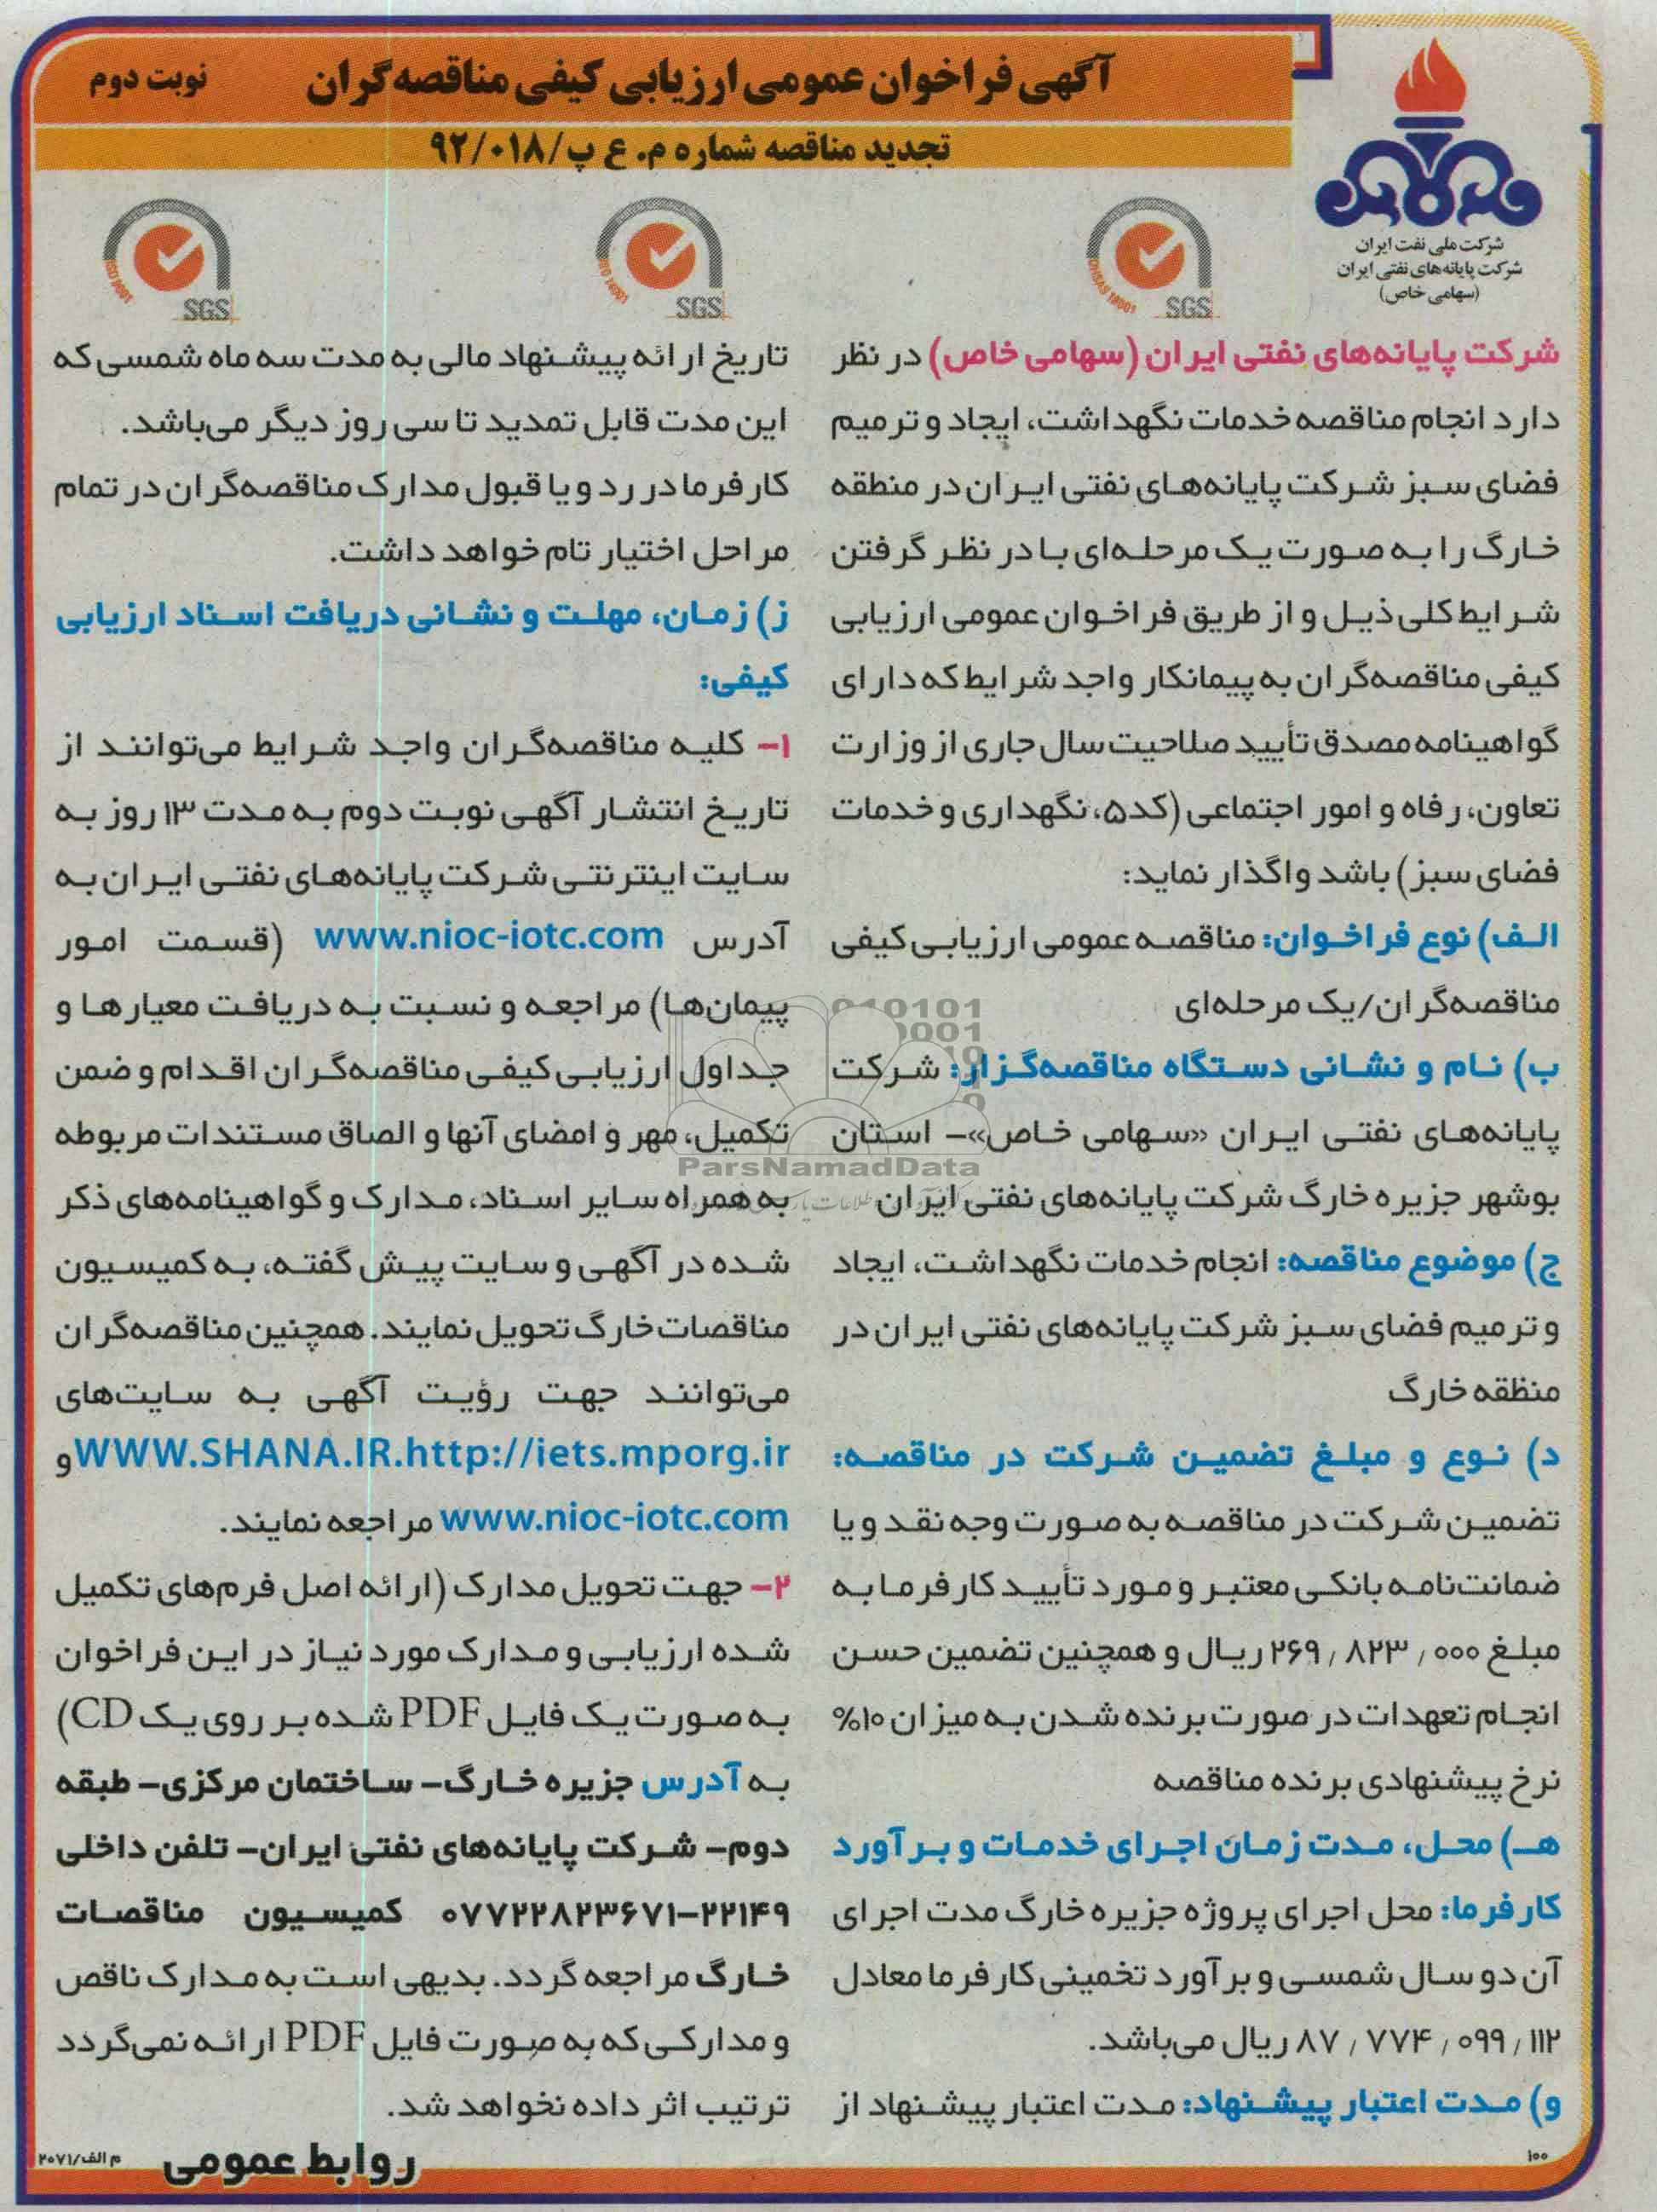 آگهی فراخوان عمومی ارزیابی کیفی مناقصه‌گران
نوبت دوم
تجدید مناقصه شماره م. ع پ/۹۲/۰۱۸
شرکت ملی نفت ایران
شرکت پایانه‌های نفتی ایران
(سهامی خاص)
OHSAS 18001
SGS
ISO 14001
SGS
ISO 9001
SGS
شرکت پایانه‌های نفتی ایران (سهامی خاص) در نظر
دارد انجام مناقصه خدمات نگهداشت، ایجاد و ترمیم
فضای سبز شرکت پایانه‌های نفتی ایران در منطقه
خارگ را به صورت یک مرحله‌ای با در نظر گرفتن
شرایط کلی ذیل و از طریق فراخوان عمومی ارزیابی
کیفی مناقصه‌گران به پیمانکار واجد شرایط که دارای
گواهینامه مصدق تأیید صلاحیت سال جاری از وزارت
تعاون، رفاه و امور اجتماعی (کد۵، نگهداری و خدمات
فضای سبز) باشد واگذار نماید:
الف) نوع فراخوان: مناقصه عمومی ارزیابی کیفی
مناقصه‌گران/یک مرحله‌ای
ب) نام و نشانی دستگاه مناقصه‌گزار: شرکت
پایانه‌های نفتی ایران «سهامی خاص»– استان
بوشهر جزیره خارگ شرکت پایانه‌های نفتی ایران
ج) موضوع مناقصه: انجام خدمات نگهداشت، ایجاد
و ترمیم فضای سبز شرکت پایانه‌های نفتی ایران در
منطقه خارگ
د) نوع و مبلغ تضمین شرکت در مناقصه:
تضمین شرکت در مناقصه به صورت وجه نقد و یا
ضمانت‌نامه بانکی معتبر و مورد تأیید کارفرما به
مبلغ ۲۶۹٫۸۲۳٫۰۰۰ ریال و همچنین تضمین حسن
انجام تعهدات در صورت برنده شدن به میزان ۱۰%
نرخ پیشنهادی برنده مناقصه
هـ) محل، مدت زمان اجرای خدمات و برآورد
کارفرما: محل اجرای پروژه جزیره خارگ مدت اجرای
آن دو سال شمسی و برآورد تخمینی کارفرما معادل
۸۷٫۷۷۴٫۰۹۹٫۱۱۲ ریال می‌باشد.
و) مدت اعتبار پیشنهاد: مدت اعتبار پیشنهاد از
۱۰۰
تاریخ ارائه پیشنهاد مالی به مدت سه ماه شمسی که
این مدت قابل تمدید تا سی روز دیگر می‌باشد.
کارفرما در رد و یا قبول مدارک مناقصه‌گران در تمام
مراحل اختیار تام خواهد داشت.
ز) زمان، مهلت و نشانی دریافت اسناد ارزیابی
کیفی:
۱– کلیه مناقصه‌گران واجد شرایط می‌توانند از
تاریخ انتشار آگهی نوبت دوم به مدت ۱۳ روز به
سایت اینترنتی شرکت پایانه‌های نفتی ایران به
آدرس www.nioc-iotc.com (قسمت امور
پیمان‌ها) مراجعه و نسبت به دریافت معیارها و
جداول ارزیابی کیفی مناقصه‌گران اقدام و ضمن
تکمیل، مهر و امضای آنها و الصاق مستندات مربوطه
به همراه سایر اسناد، مدارک و گواهینامه‌های ذکر
شده در آگهی و سایت پیش گفته، به کمیسیون
مناقصات خارگ تحویل نمایند. همچنین مناقصه‌گران
می‌توانند جهت رؤیت آگهی به سایت‌های
WWW.SHANA.IR.http://iets.mporg.ir و
www.nioc-iotc.com مراجعه نمایند.
۲– جهت تحویل مدارک (ارائه اصل فرم‌های تکمیل
شده ارزیابی و مدارک مورد نیاز در این فراخوان
به صورت یک فایل PDF شده بر روی یک CD)
به آدرس جزیره خارگ– ساختمان مرکزی– طبقه
دوم– شرکت پایانه‌های نفتی ایران– تلفن داخلی
۰۷۷۲۲۸۲۳۶۷۱–۲۲۱۴۹ کمیسیون مناقصات
خارگ مراجعه گردد. بدیهی است به مدارک ناقص
و مدارکی که به صورت فایل PDF ارائه نمی‌گردد
ترتیب اثر داده نخواهد شد.
روابط عمومی
م الف/۲۰۷۱
ParsNamadData